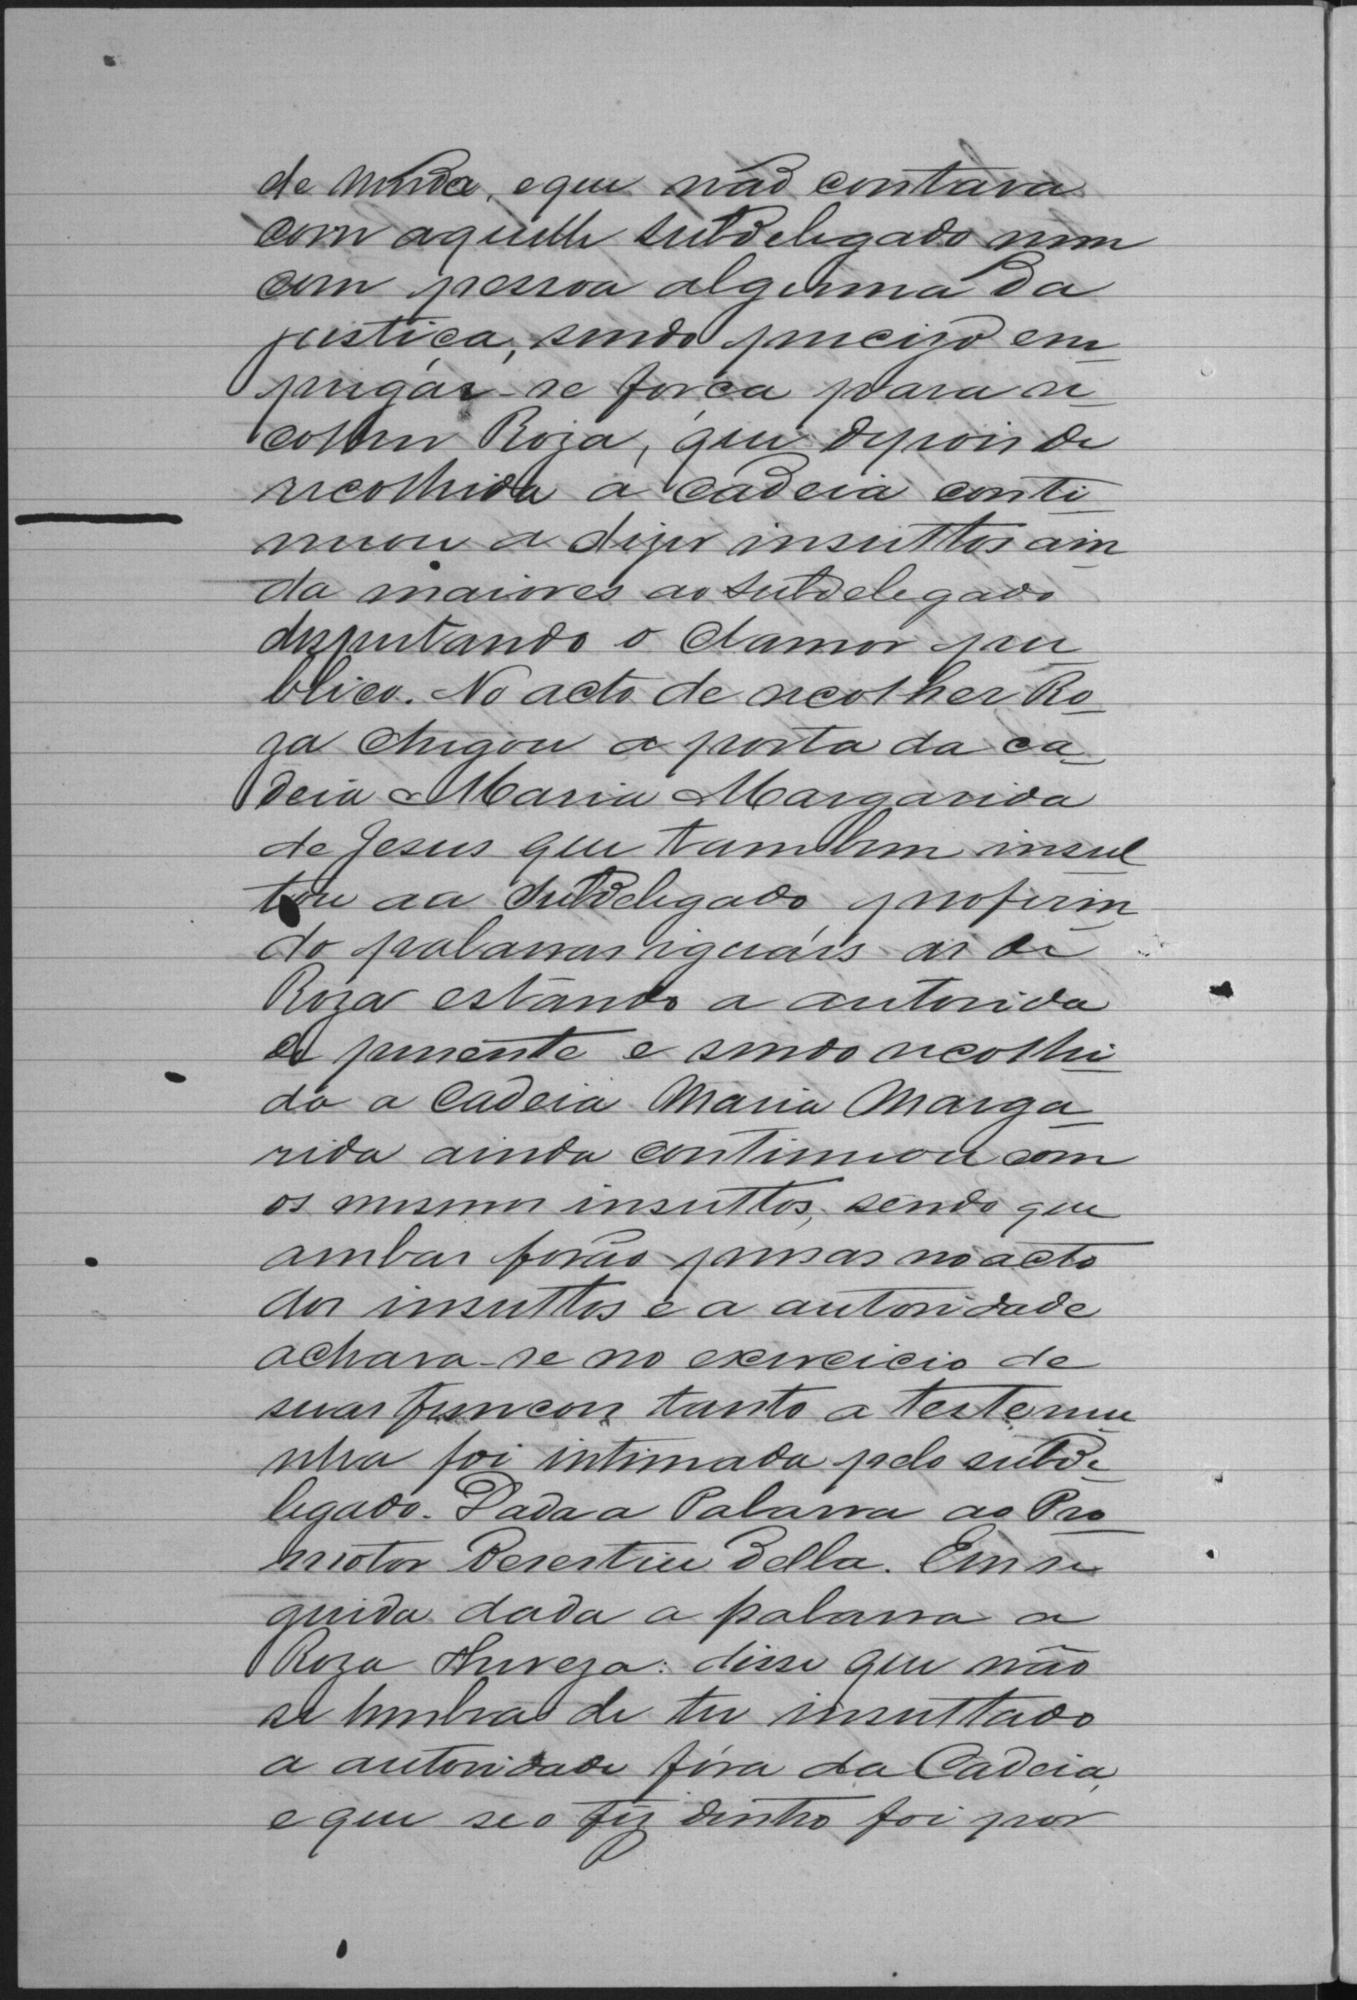 de merda, e que não contava
com aquelle subdelegado nem
com pessoa alguma da
justiça, sendo preciso em
pregár-se força para re
colher Roza, que depois de
recolhida a cadeia conti
nuou a dizer insulttos ain
da maiores ao subdelegado
despertando o clamor pu
blico. No acto de recolher Ro
za chegou a porta da ca
deia Maria Margarida
de Jesus que tambem insul
tou aa subdelegado proferin
do palavras iguáis as de
Roza estando a autorida
de presente e sendo recolhi
da a Cadeia Maria Marga
rida ainda continuou com
os mesmos insulttos, sendo que
ambas forão presas no acto
dos insulttos e a autoridade
achava-se no exercicio de
suas funções tanto a testemu
nha foi intimada pelo subde
legado. Dada a Palavra ao Pro
motor Desestiu della. Em se
guida dada a palavra a
Roza disse que não
se lembra de ter insulttado
a autoridade fóra da Cadeia,
e que se o fez dentro foi por